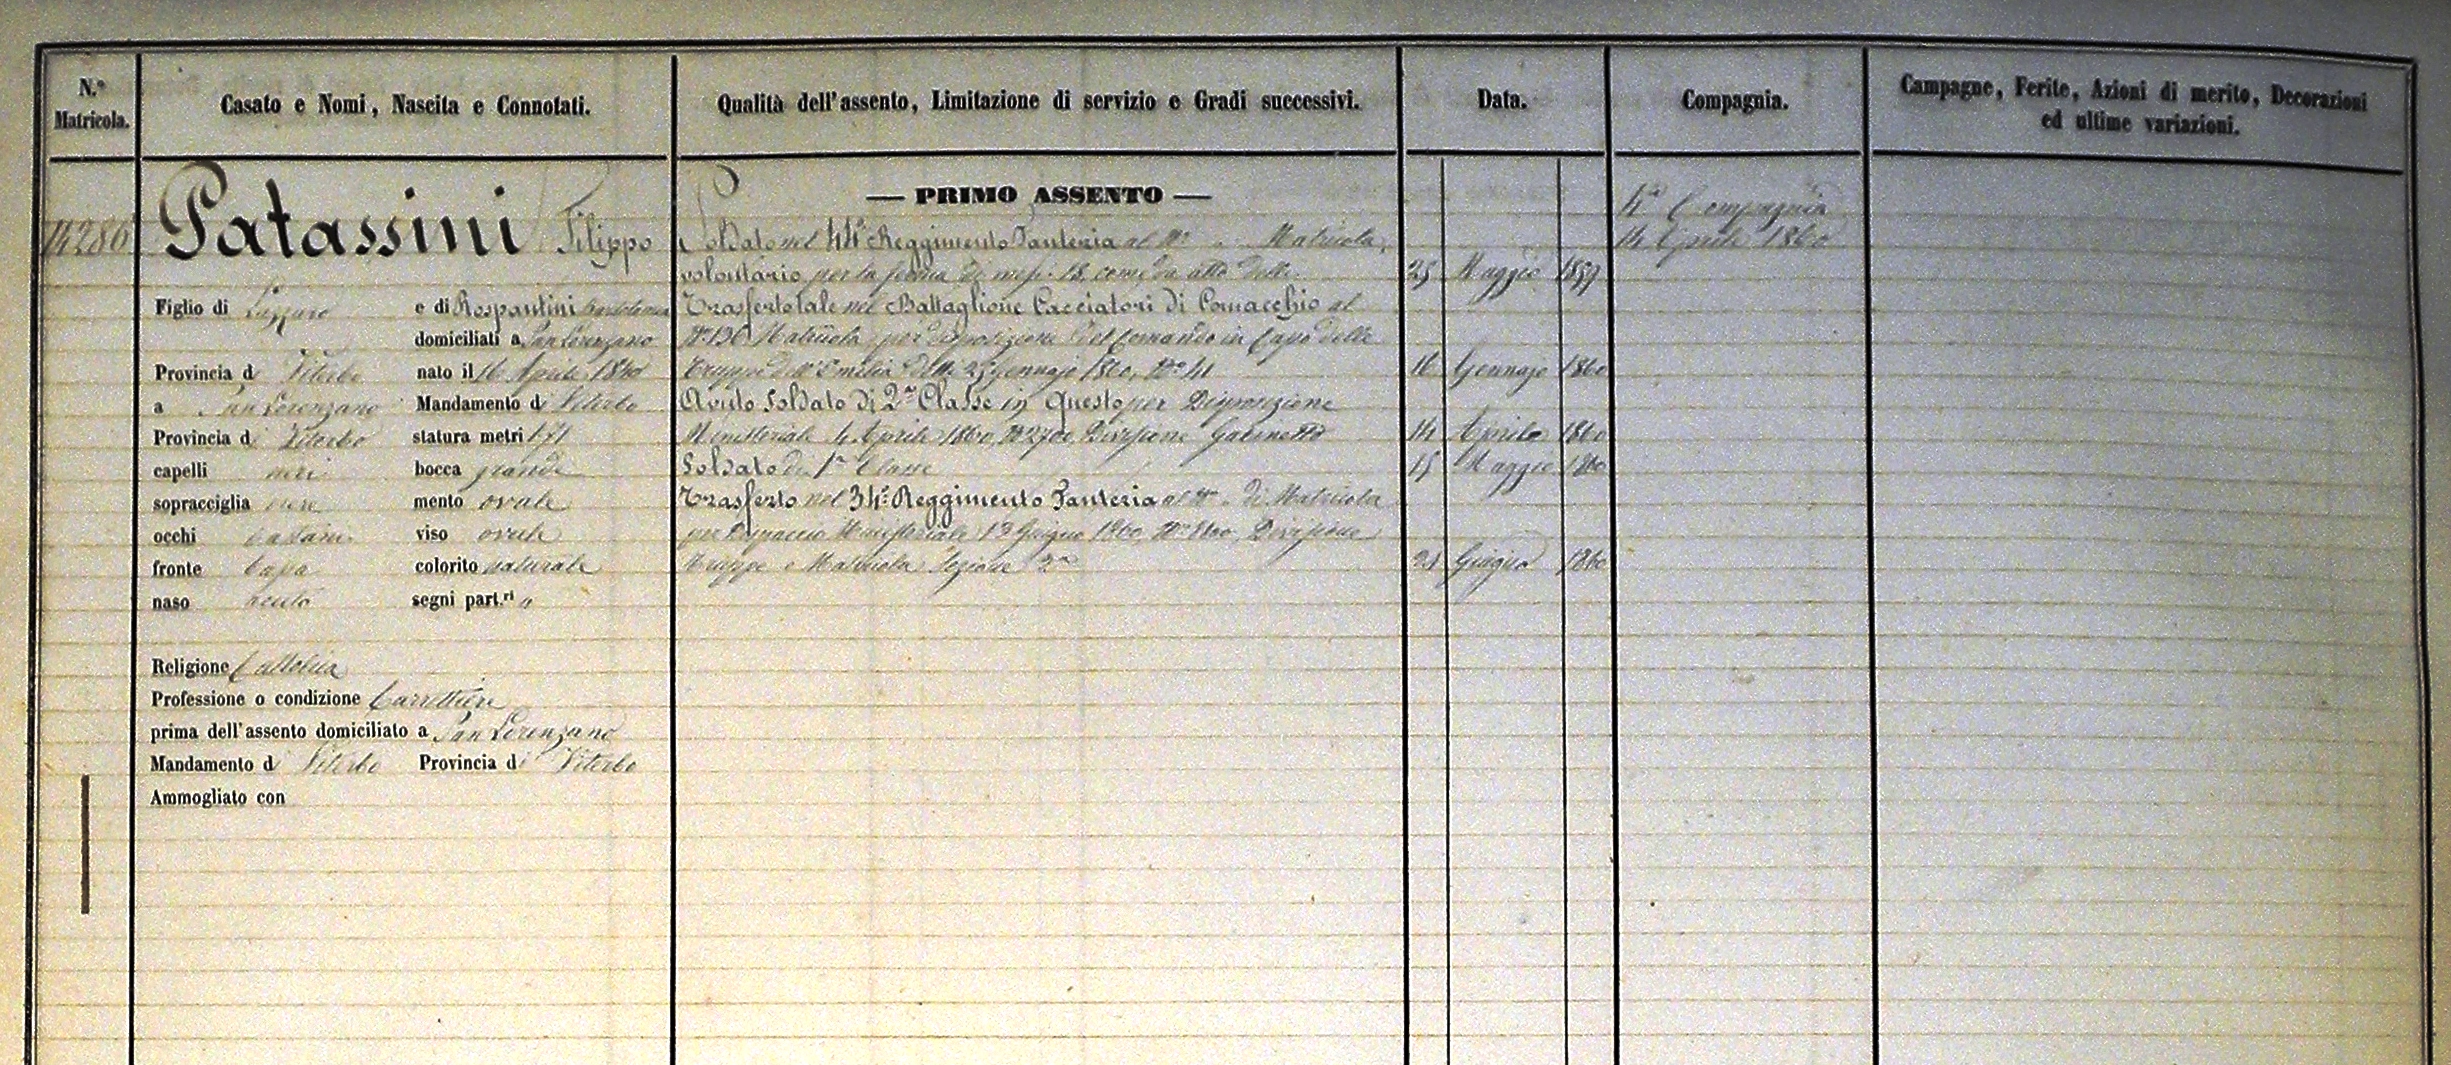 N.º Matricola.
Casato e Nomi, Nascita e Connotati.
Qualità dell'assento, Limitazione di servizio e Gradi successivi.
Data.
Compagnia.
Campagne, Ferite, Azioni di merito, Decorazioni
ed ultime variazioni.
14286
Patassini Filippo
Figlio di Lazzaro e di Rospantini
domiciliati a San Lorenzano
Provincia di Viterbo nato il 16 Aprile 1840
a San Lorenzano Mandamento di Viterbo
Provincia di Viterbo statura metri 1.71
capelli neri bocca grande
sopracciglia nere mento ovale
occhi castani viso ovale
fronte bassa colorito naturale
naso acuto segni part.ri "
Religione Cattolica
Professione o condizione Carrettiere
prima dell'assento domiciliato a San Lorenzano
Mandamento di Viterbo Provincia di Viterbo
Ammogliato con
— PRIMO ASSENTO —
Soldato nel 44º Reggimento Fanteria al Nº " Matricola,
volontario per la ferma di mesi 18, come da atto delli 25 Maggio 1859
Trasferto tale nel Battaglione Cacciatori di Comacchio al
Nº 136 Matricola per disposizione del Comando in Capo delle
Truppe dell'Emilia delli 25 Gennajo 1860, Nº 41 16 Gennajo 1860
Avuto Soldato di 2ª Classe in questo per Disposizione
Ministeriale 4 Aprile 1860, Nº 2700 Divisione Gabinetto 14 Aprile 1860
Soldato di 1ª Classe 15 Maggio 1860
Trasferto nel 34º Reggimento Fanteria al Nº " di Matricola
per Dispaccio Ministeriale 13 Giugno 1860 Divisione
Truppe e Matricola Sezione 2ª 21 Giugno 1860
4ª Compagnia
14 Aprile 1860